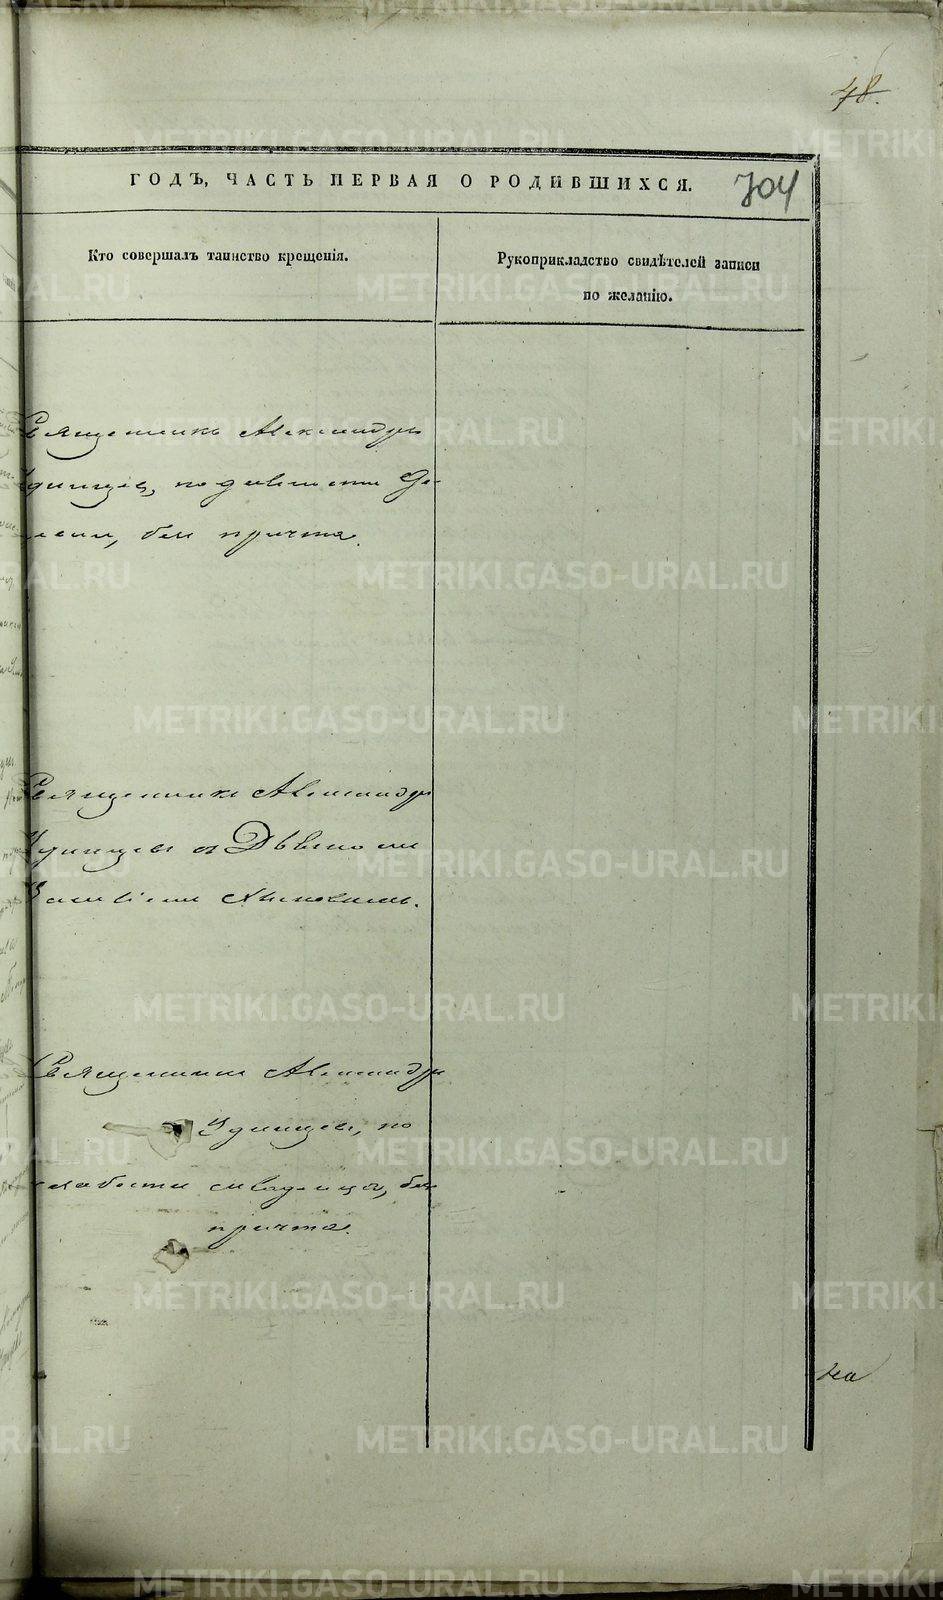 48.
ГОДЪ, ЧАСТЬ ПЕРВАЯ О РОДИВШИХСЯ.
704
Кто совершалъ таинство крещенія.
Рукоприкладство свидѣтелей записи
по желанію.
Священникъ Александръ
Удинцевъ,
безъ причта.
Священникъ Александръ
Удинцевъ съ
Священникъ Александръ
Удинцевъ, по
слабости младенца, безъ
причта.
на
METRIKI.GASO-URAL.RU